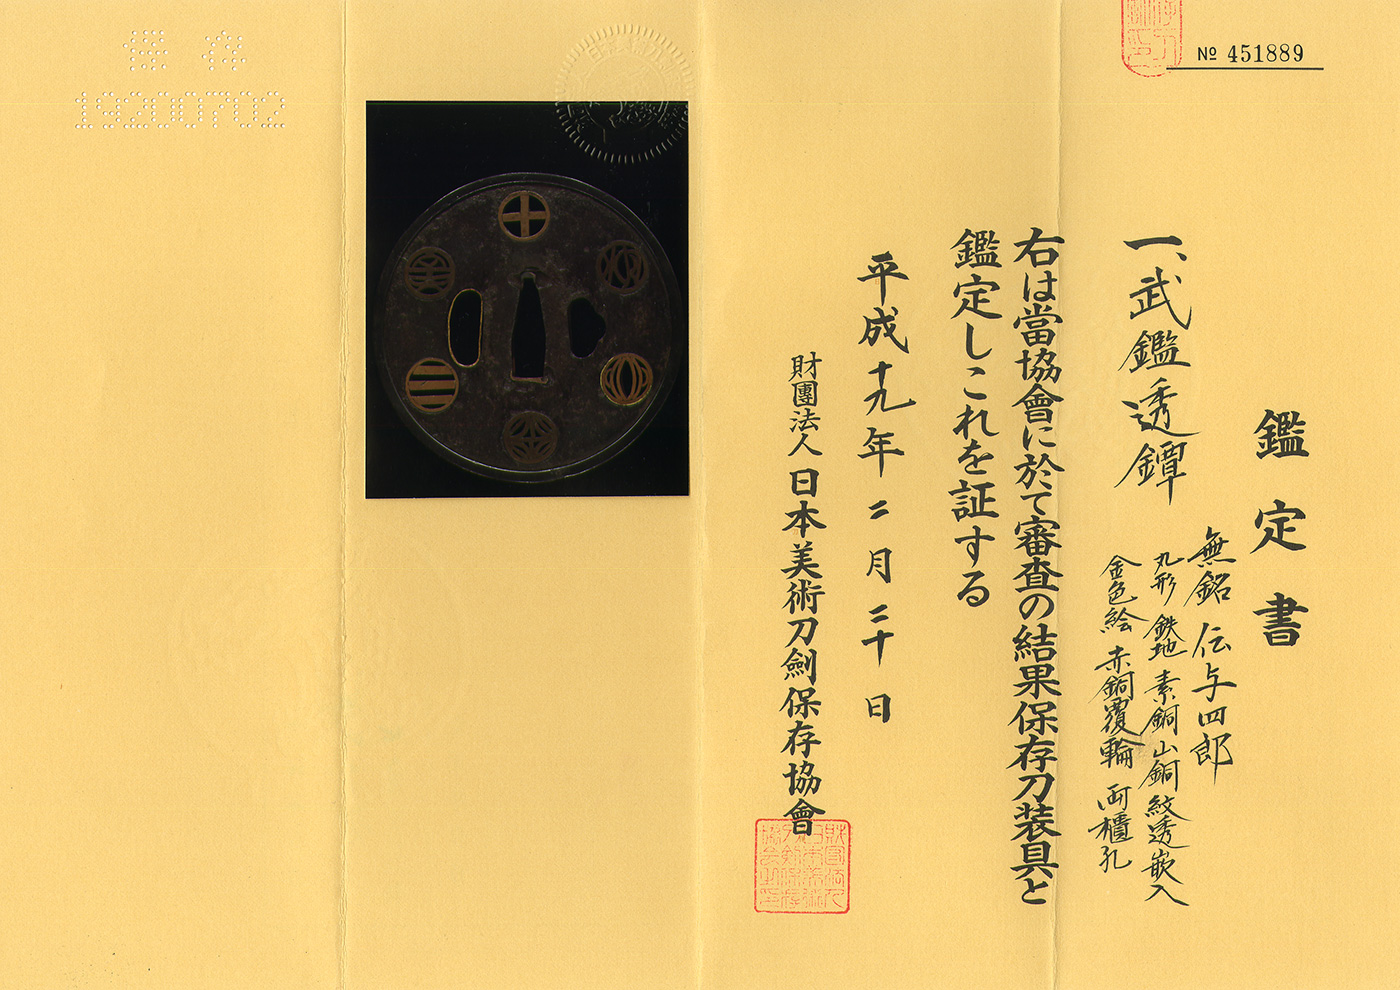 № 451889
鑑定書
一、武鑑透鐔
無銘 伝与四郎
丸形 鉄地 素銅山銅紋透嵌入
金色絵 赤銅覆輪 両櫃孔
右は當協會に於て審査の結果保存刀装具と
鑑定しこれを証する
平成十九年二月二十日
財團法人日本美術刀劍保存協會
保存
19200702